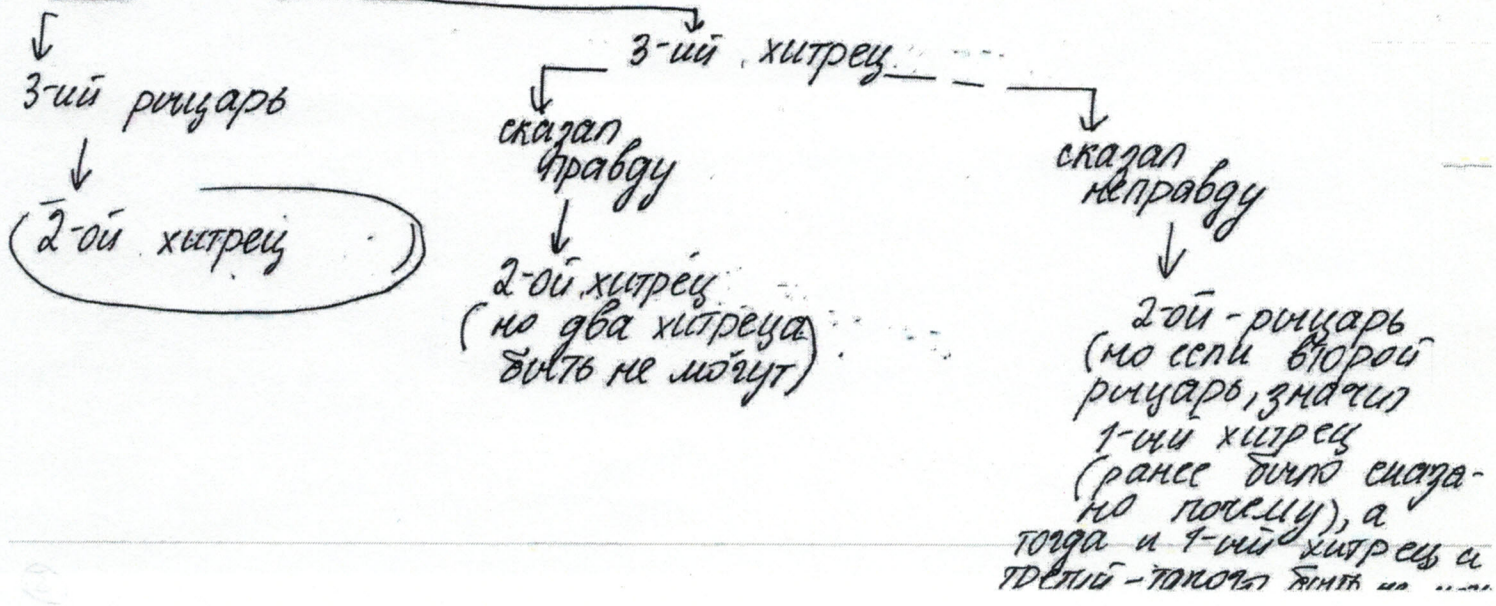 3-ий рыцарь
2-ой хитрец
3-ий хитрец
сказал
правду
2-ой хитрец
(но два хитреца
быть не могут)
сказал
неправду
2-ой - рыцарь
(но если второй
рыцарь, значит
1-ый хитрец
(ранее было сказа-
но почему), а
тогда и 1-ый хитрец и
третий - такого быть не